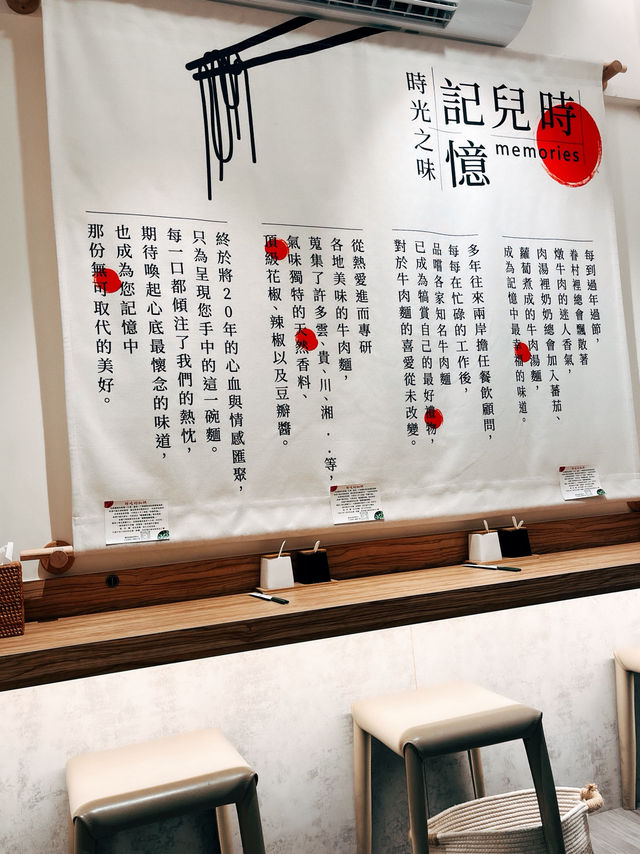 時兒記憶
memories
時光之味
每到過年過節,
眷村裡總會飄散著
燉牛肉的迷人香氣,
肉湯裡奶奶總會加入蕃茄、
蘿蔔煮成的牛肉湯麵,
成為記憶中最幸福的味道。
多年往來兩岸擔任餐飲顧問,
每每在忙碌的工作後,
品嚐各家知名牛肉麵
已成為犒賞自己的最好禮物,
對於牛肉麵的喜愛從未改變。
從熱愛進而專研
各地美味的牛肉麵,
蒐集了許多雲、貴、川、湘..等,
氣味獨特的天然香料、
頂級花椒、辣椒以及豆瓣醬。
終於將20年的心血與情感匯聚,
只為呈現您手中的這一碗麵。
每一口都傾注了我們的熱忱,
期待喚起心底最懷念的味道,
也成為您記憶中
那份無可取代的美好。